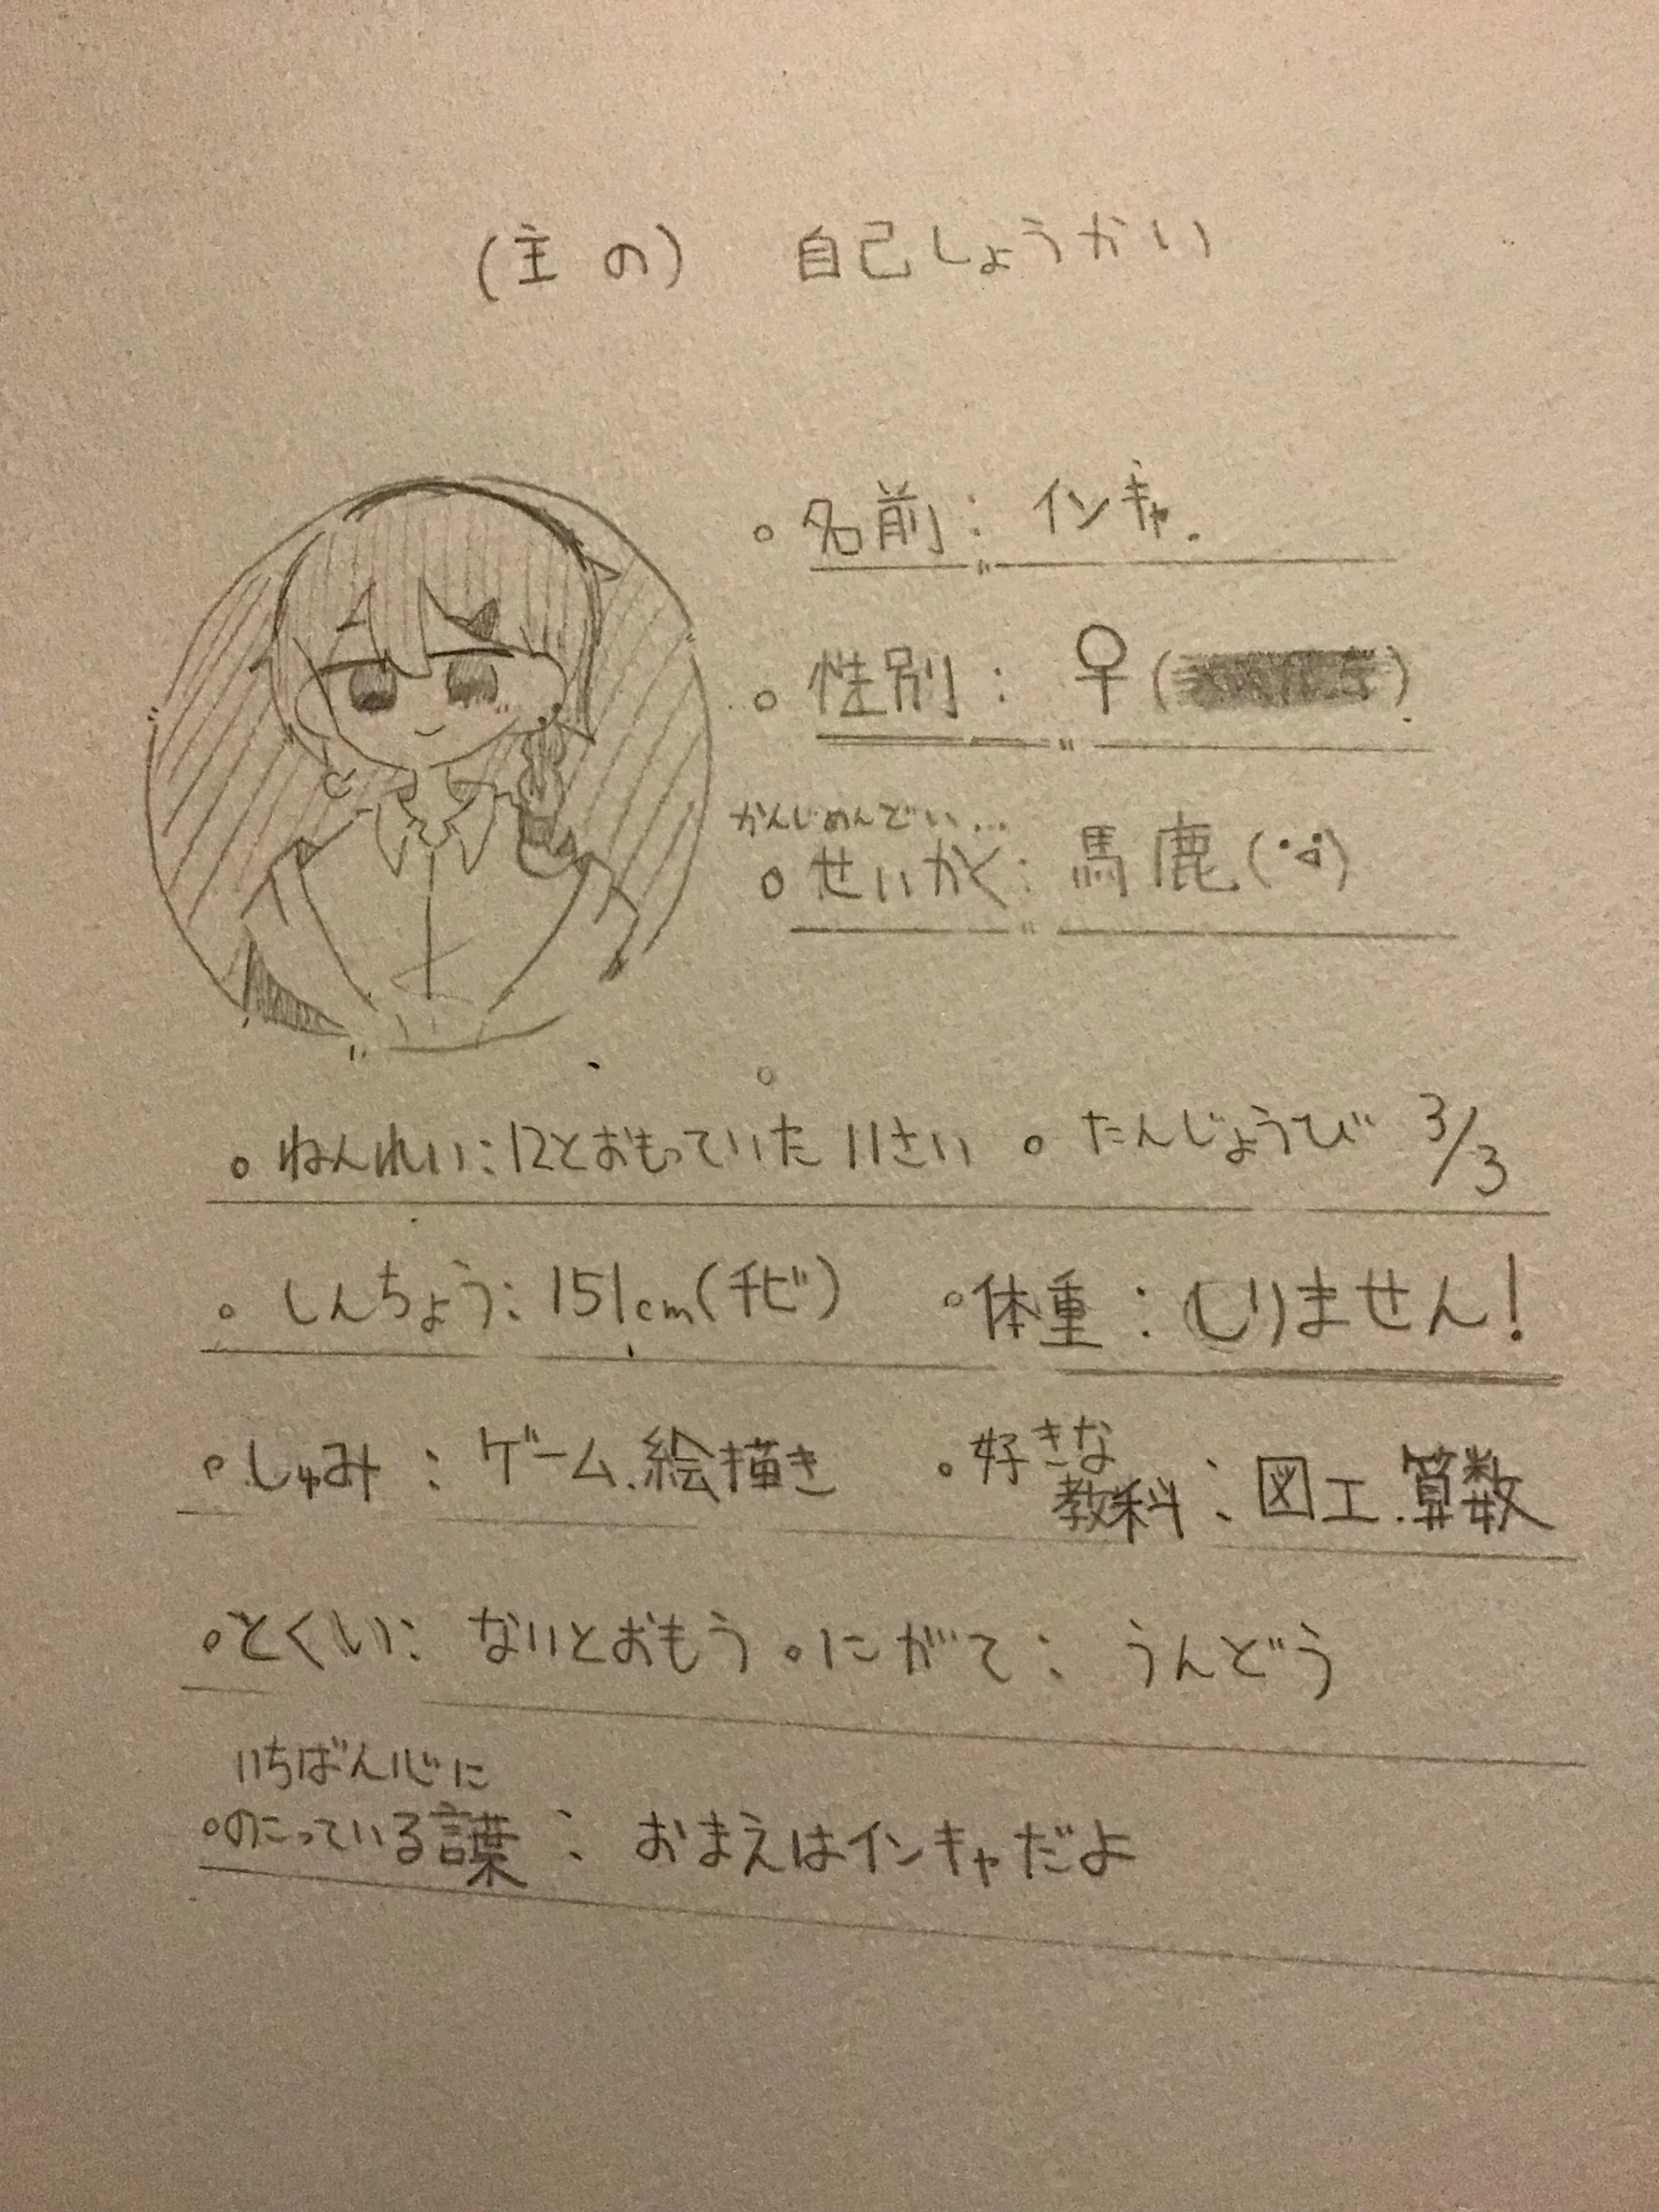 (主の) 自己しょうかい
。名前: インキャ.
。性別: ♀()
かんじめんどい...
。せいかく: 馬鹿(・·)
。ねんれい:12とおもっていた11さい 。たんじょうび 3/3
。しんちょう:151cm(チビ) 。体重:しりません!
。しゅみ:ゲーム.絵描き 。好きな教科:図工.算数
。とくい:ないとおもう 。にがて:うんどう
いちばん心に
。のこっている言葉:おまえはインキャだよ